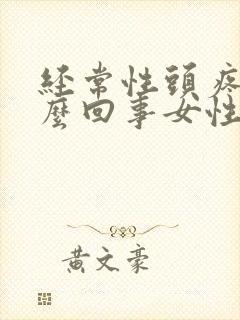 經常性頭疼
麼回事女性
黃文豪